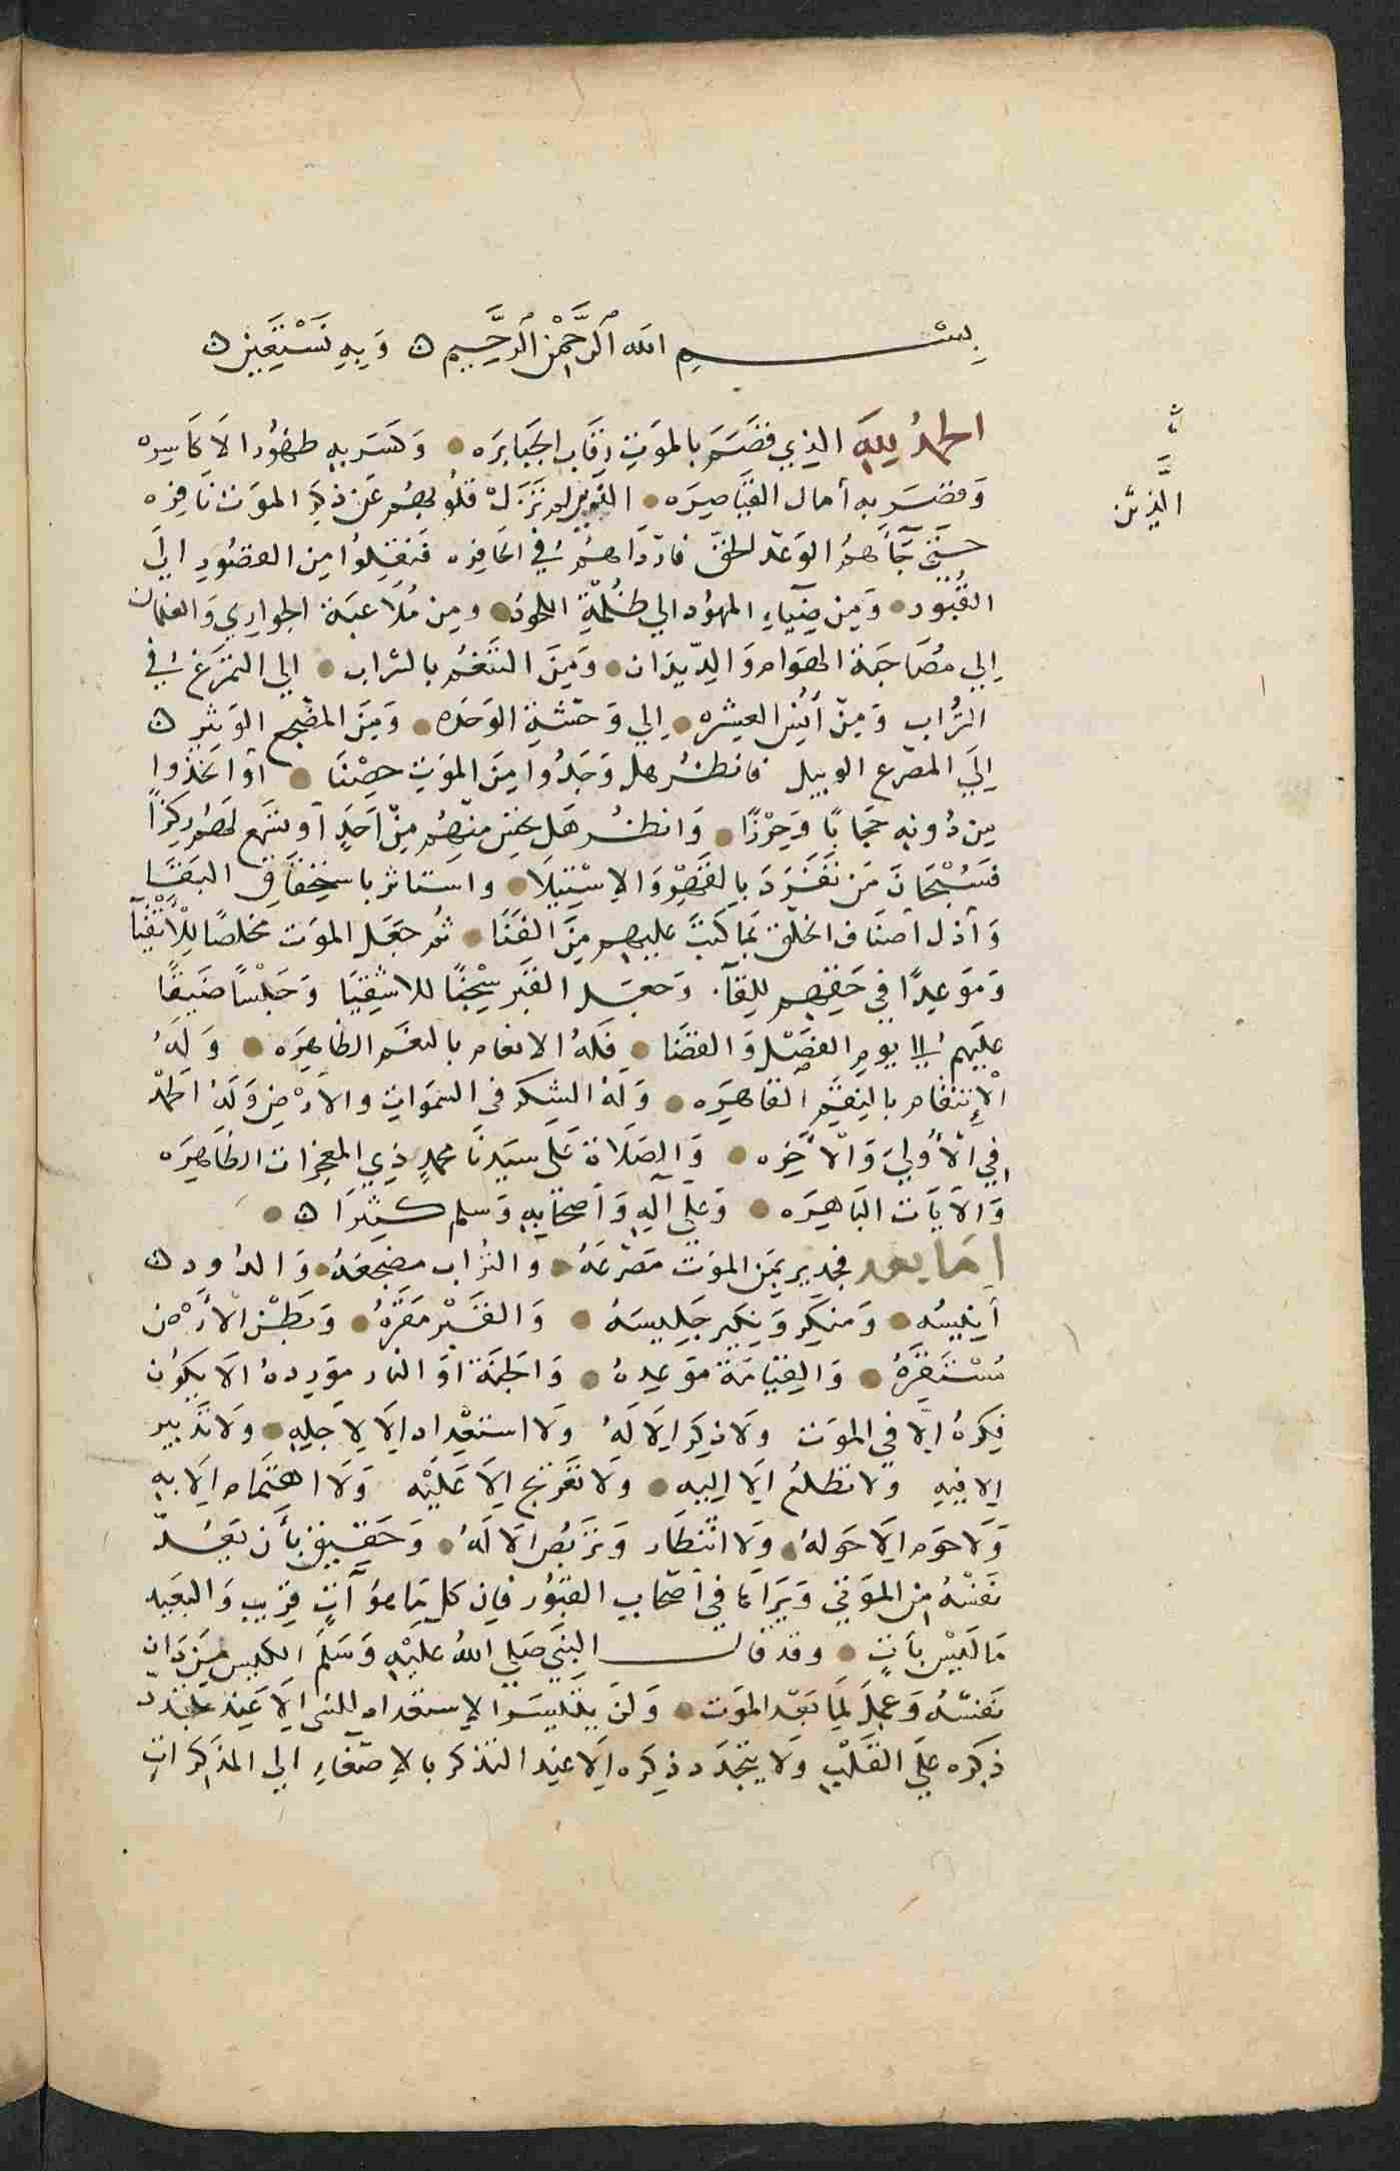 بِسْــــمِ الله الرَّحْمٰنِ الرَّحِيمِ ۞ وَبِهِ نَسْتَعِينُ ۞
الحمدُ لِلهِ الذِي قصَمَ بالموَتِ رِقَابَ الجَبَابِرَه ● وَكسَرَ بهِ ظهُورَ الاَكَاسِره
وَقصَرَ بهِ أمال القيَاصِرَه ● الذِين لم تزَل قلُوبهم عَن ذِكرِ الموَت نَافِره
الَّذِيْنَ
حَتّى جَآءَهمُ الوَعدُ الحقّ فارْدَاهمُ في الحَافِره فنقِلُوا مِن القصُورِ الىَ
القُبُور ● وَمِن ضِيَاءِ المهُود الي ظُلمةِ اللحود ● ومِن مُلاَعَبَة الجوَارِي وَالغلمَان
اِلي مقَاسَاة الهوَام وَالدّيدَان ● وَمِنَ التنَعُم بالشراب ● الي التمَرّغ في
التُّراب وَمِن أنُسِ العِشره ● اِلي وَحشَةِ الوَحَده ● وَمِنَ المضْجعِ الوَثيرِ ۞
اِلَي المصرَع الوبيل فانظُر هل وَجَدُوا مِنَ الموَتِ حِصْنَا ● اوَاتخذُوا
مِن دُونِهِ حِجَابًا وَحِرْزًا ● وَانظُر هَل تحسّ مِنهُم مِن اَحَدٍ اَو تسْمَع لَهُم رِكزًا
فسُبْحَانَ مَن تفَرّدَ بِالقَهْرِ وَالاِسْتِيلاَ ● واستاثر باسْتحقَاقِ البقَا
وَأذل أصنَاف الخلق بمَا كتبَ عليهم مِنَ الفنَا ● ثُم جعَل الموَت مخلصًا لِلْأتْقِيَآ
وَموَعِدًا فِي حَقِهم لِلِقآء وَجعَل القبْر سِجْنًا للاشقِيَا وَحَبْسًا ضيقًا
عليَهِمُ الي يومِ الفصْل وَالقضَا ● فلَهُ الانعَام بالنعَم الظاهِرَه ● وَلَهُ
الْاِنتقَام بالنِقَمِ القاهِرَه ● وَلهُ الشكر في السّموَات والاَرْض وَلَهُ الحمْد
فِي الْأُولىَ وَالْآخِره ● وَالصَلاَة عَلَى سَيّدِنا محمدٍ ذِي المعجزات الظَاهِرَه
وَالآيَات البَاهِرَه ● وَعلي آلِهِ وَأصحَابهِ وَسلم كثيرًا ۞ ●
امَا بعد فجدِير بمَن الموَت مَصرَعَهُ ● والتُراب مضجعَهُ ● وَالدُود ۞
أنِيسُه ● وَمنكِر وَنكِير جَلِيسَهُ ● وَالقبْر مَقرّهُ ● وَبطْن الْأَرْض
مُسْتقَرّهُ ● وَالقِيَامَة موَعِدهُ ● وَالجنَة اوَالنار موَرِدهُ الاَ يكوُن
فِكرهُ الاّ في الموَت ولاَ ذِكرَ الاَ لَهُ وَلاَ استعْدَاد الاَ لِاَجلِهِ ● ولاَ تدْبير
الا فِيهِ ولا تطلعُ الاَ اليهِ ● وَلا تعَريج الاَ عَلَيْهِ وَلاَ اهتمَام الاَ بهِ
وَلاَ حَوم الاَ حَولهُ ● وَلاَ انتظَار وَتربصُ الاَ لَهُ ● وَحَقيِق بأَن يَعُدّ
نفَسْهُ مِن الموَتي وَيَرَاهَا في أصحَابِ القبُور فإن كل مَا هوَ آتٍ قرِيب وَالبعَيِد
مَا لَيْسَ بآتٍ ● وقد قَال النبِي صَلي اللهُ عَليْهِ وَسَلمَ الكيس مَن دَان
نفَسْهُ وَعمِلَ لِمَا بَعَد الموَت ● وَلن يتيسَر الاِستعداد للشي الاَ عِند تجدد
ذِكره علي القَلبِ وَلا يتجَدد ذِكره اِلاَ عِند التذكر بالاِصغَاءِ الي المذَكِرَاتِ